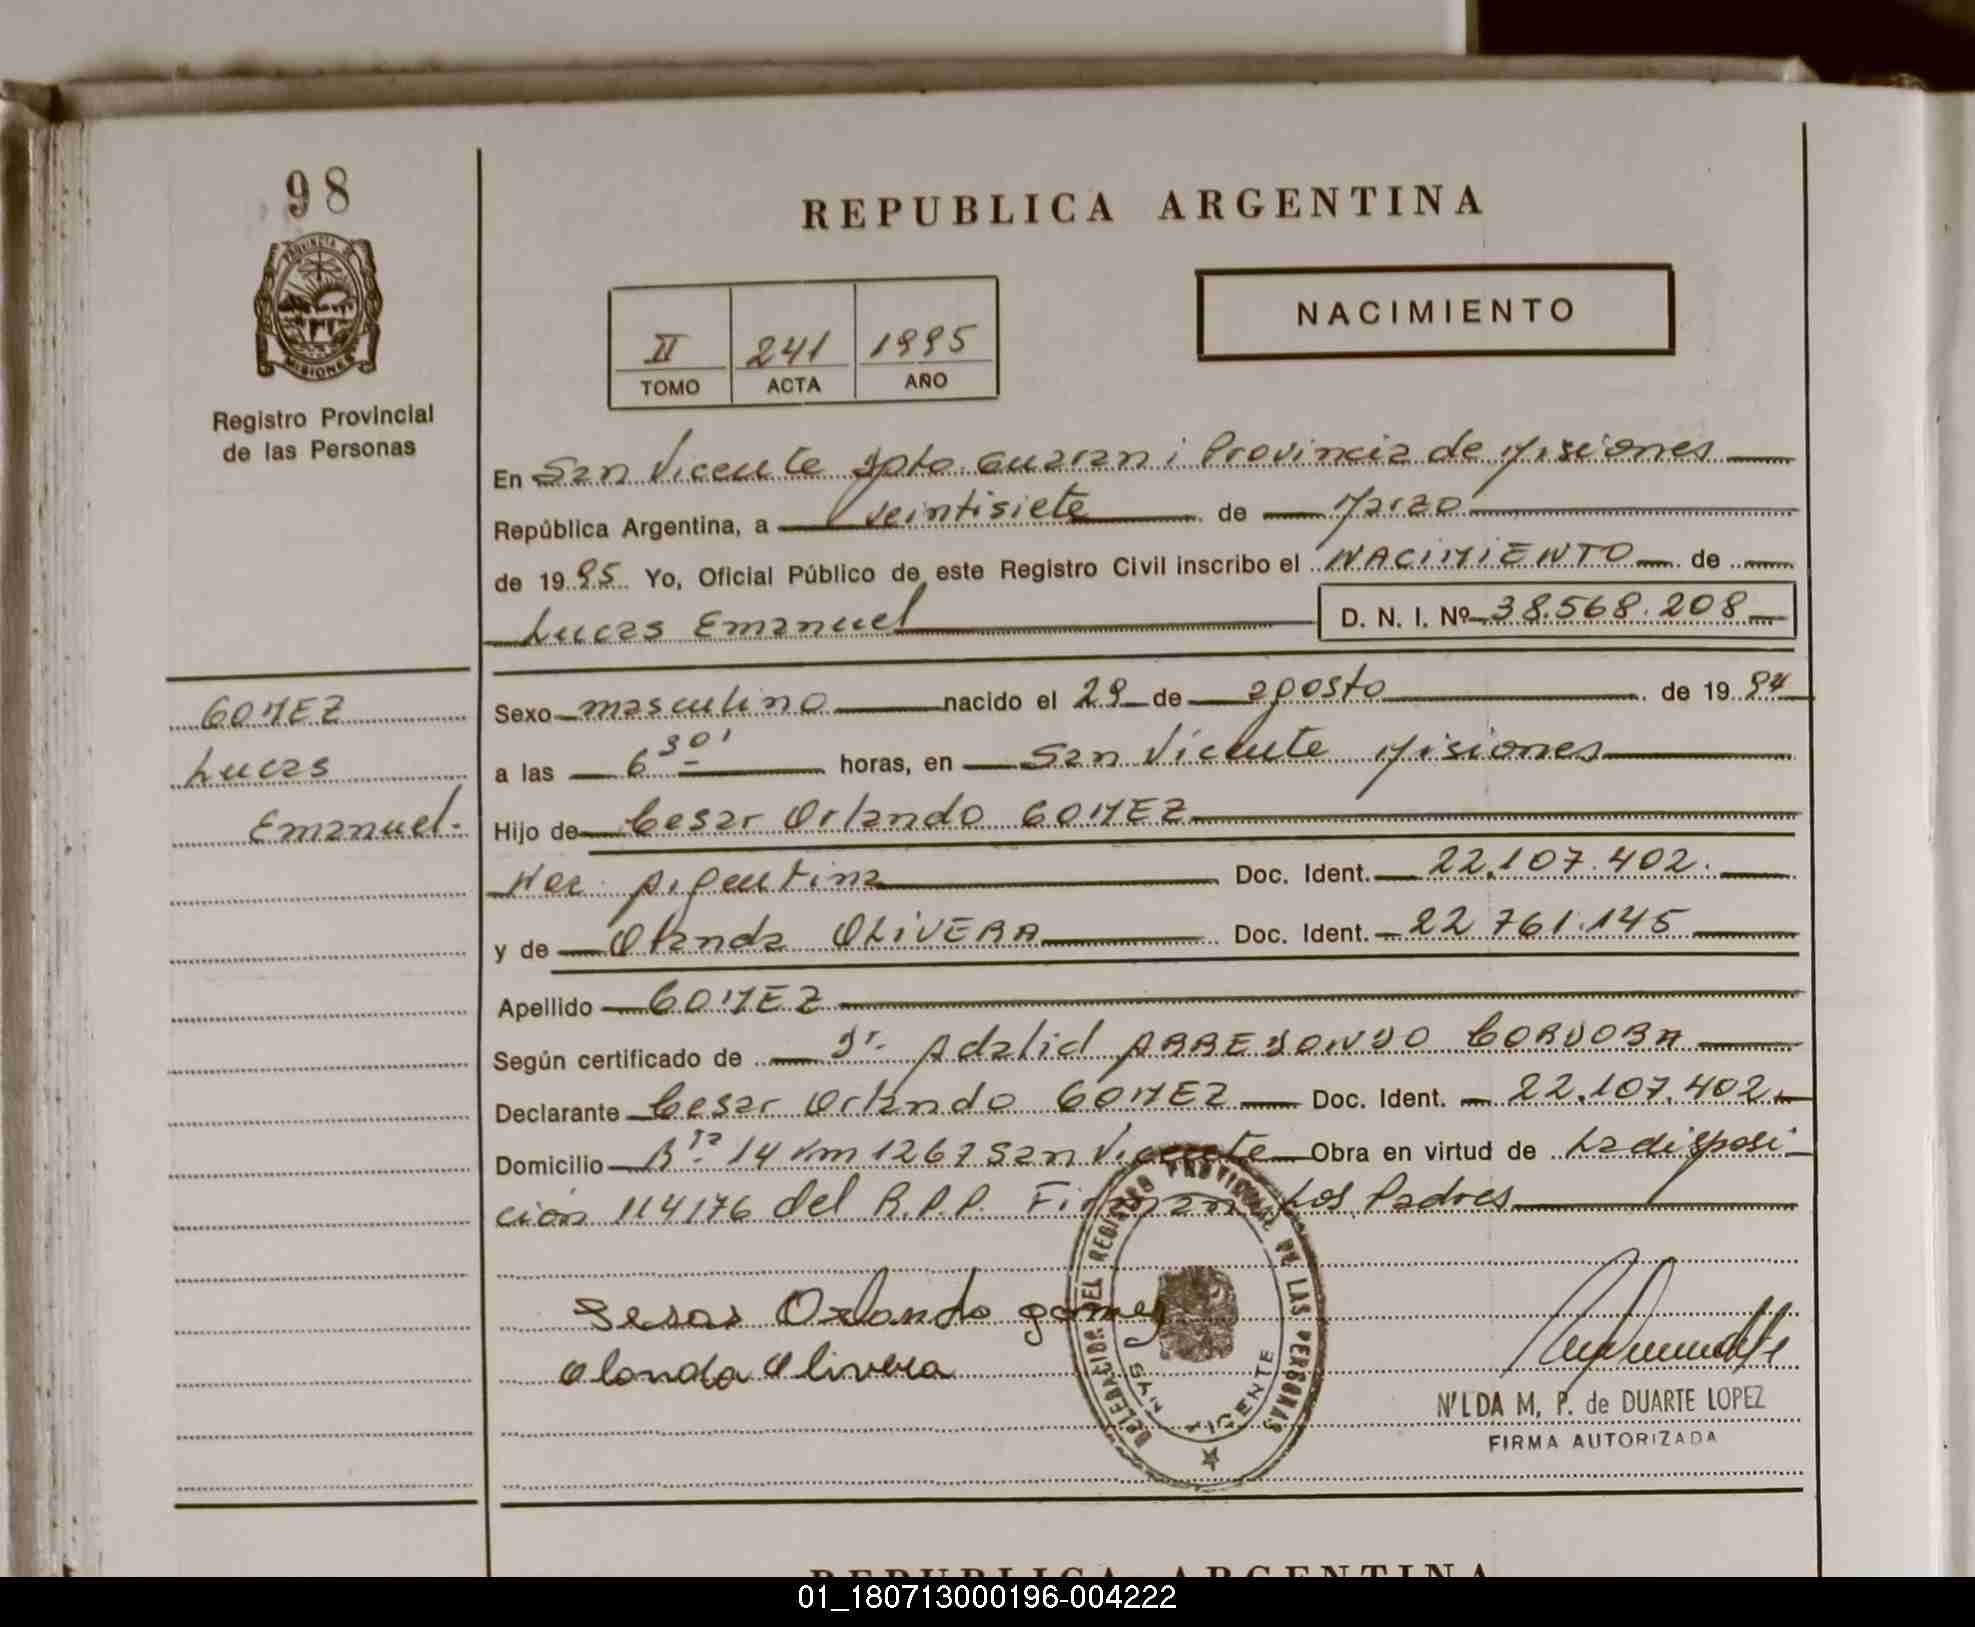 98
PROVINCIA DE
MISIONES
Registro Provincial
de las Personas
REPUBLICA ARGENTINA
NACIMIENTO
II 241 1995
TOMO ACTA AÑO
En San Vicente Dpto. Guarani Provincia de Misiones
República Argentina, a veintisiete de Marzo
de 1995 Yo, Oficial Público de este Registro Civil inscribo el NACIMIENTO de
Lucas Emanuel D. N. I. Nº 38.568.208
GOMEZ
Lucas
Emanuel.
Sexo masculino nacido el 29 de agosto de 1994
a las 6 30' horas, en San Vicente Misiones
Hijo de Cesar Orlando GOMEZ
Nac. Argentina Doc. Ident. 22.107.402.
y de Olanda OLIVERA Doc. Ident. 22 761.145
Apellido GOMEZ
Según certificado de Dr. Adalid ARREDONDO CORDOBA
Declarante Cesar Orlando GOMEZ Doc. Ident. 22.107.402.
Domicilio Rta 14 Km 1267 San Vicente Obra en virtud de La disposi
ción 114176 del R.P.P. Firman Los Padres
Sesar Orlando gomez
Olanda Olivera
DELEGACION DEL REGISTRO PROVINCIAL DE LAS PERSONAS
SAN VICENTE
NILDA M. P. de DUARTE LOPEZ
FIRMA AUTORIZADA
REPUBLICA ARGENTINA
01_180713000196-004222